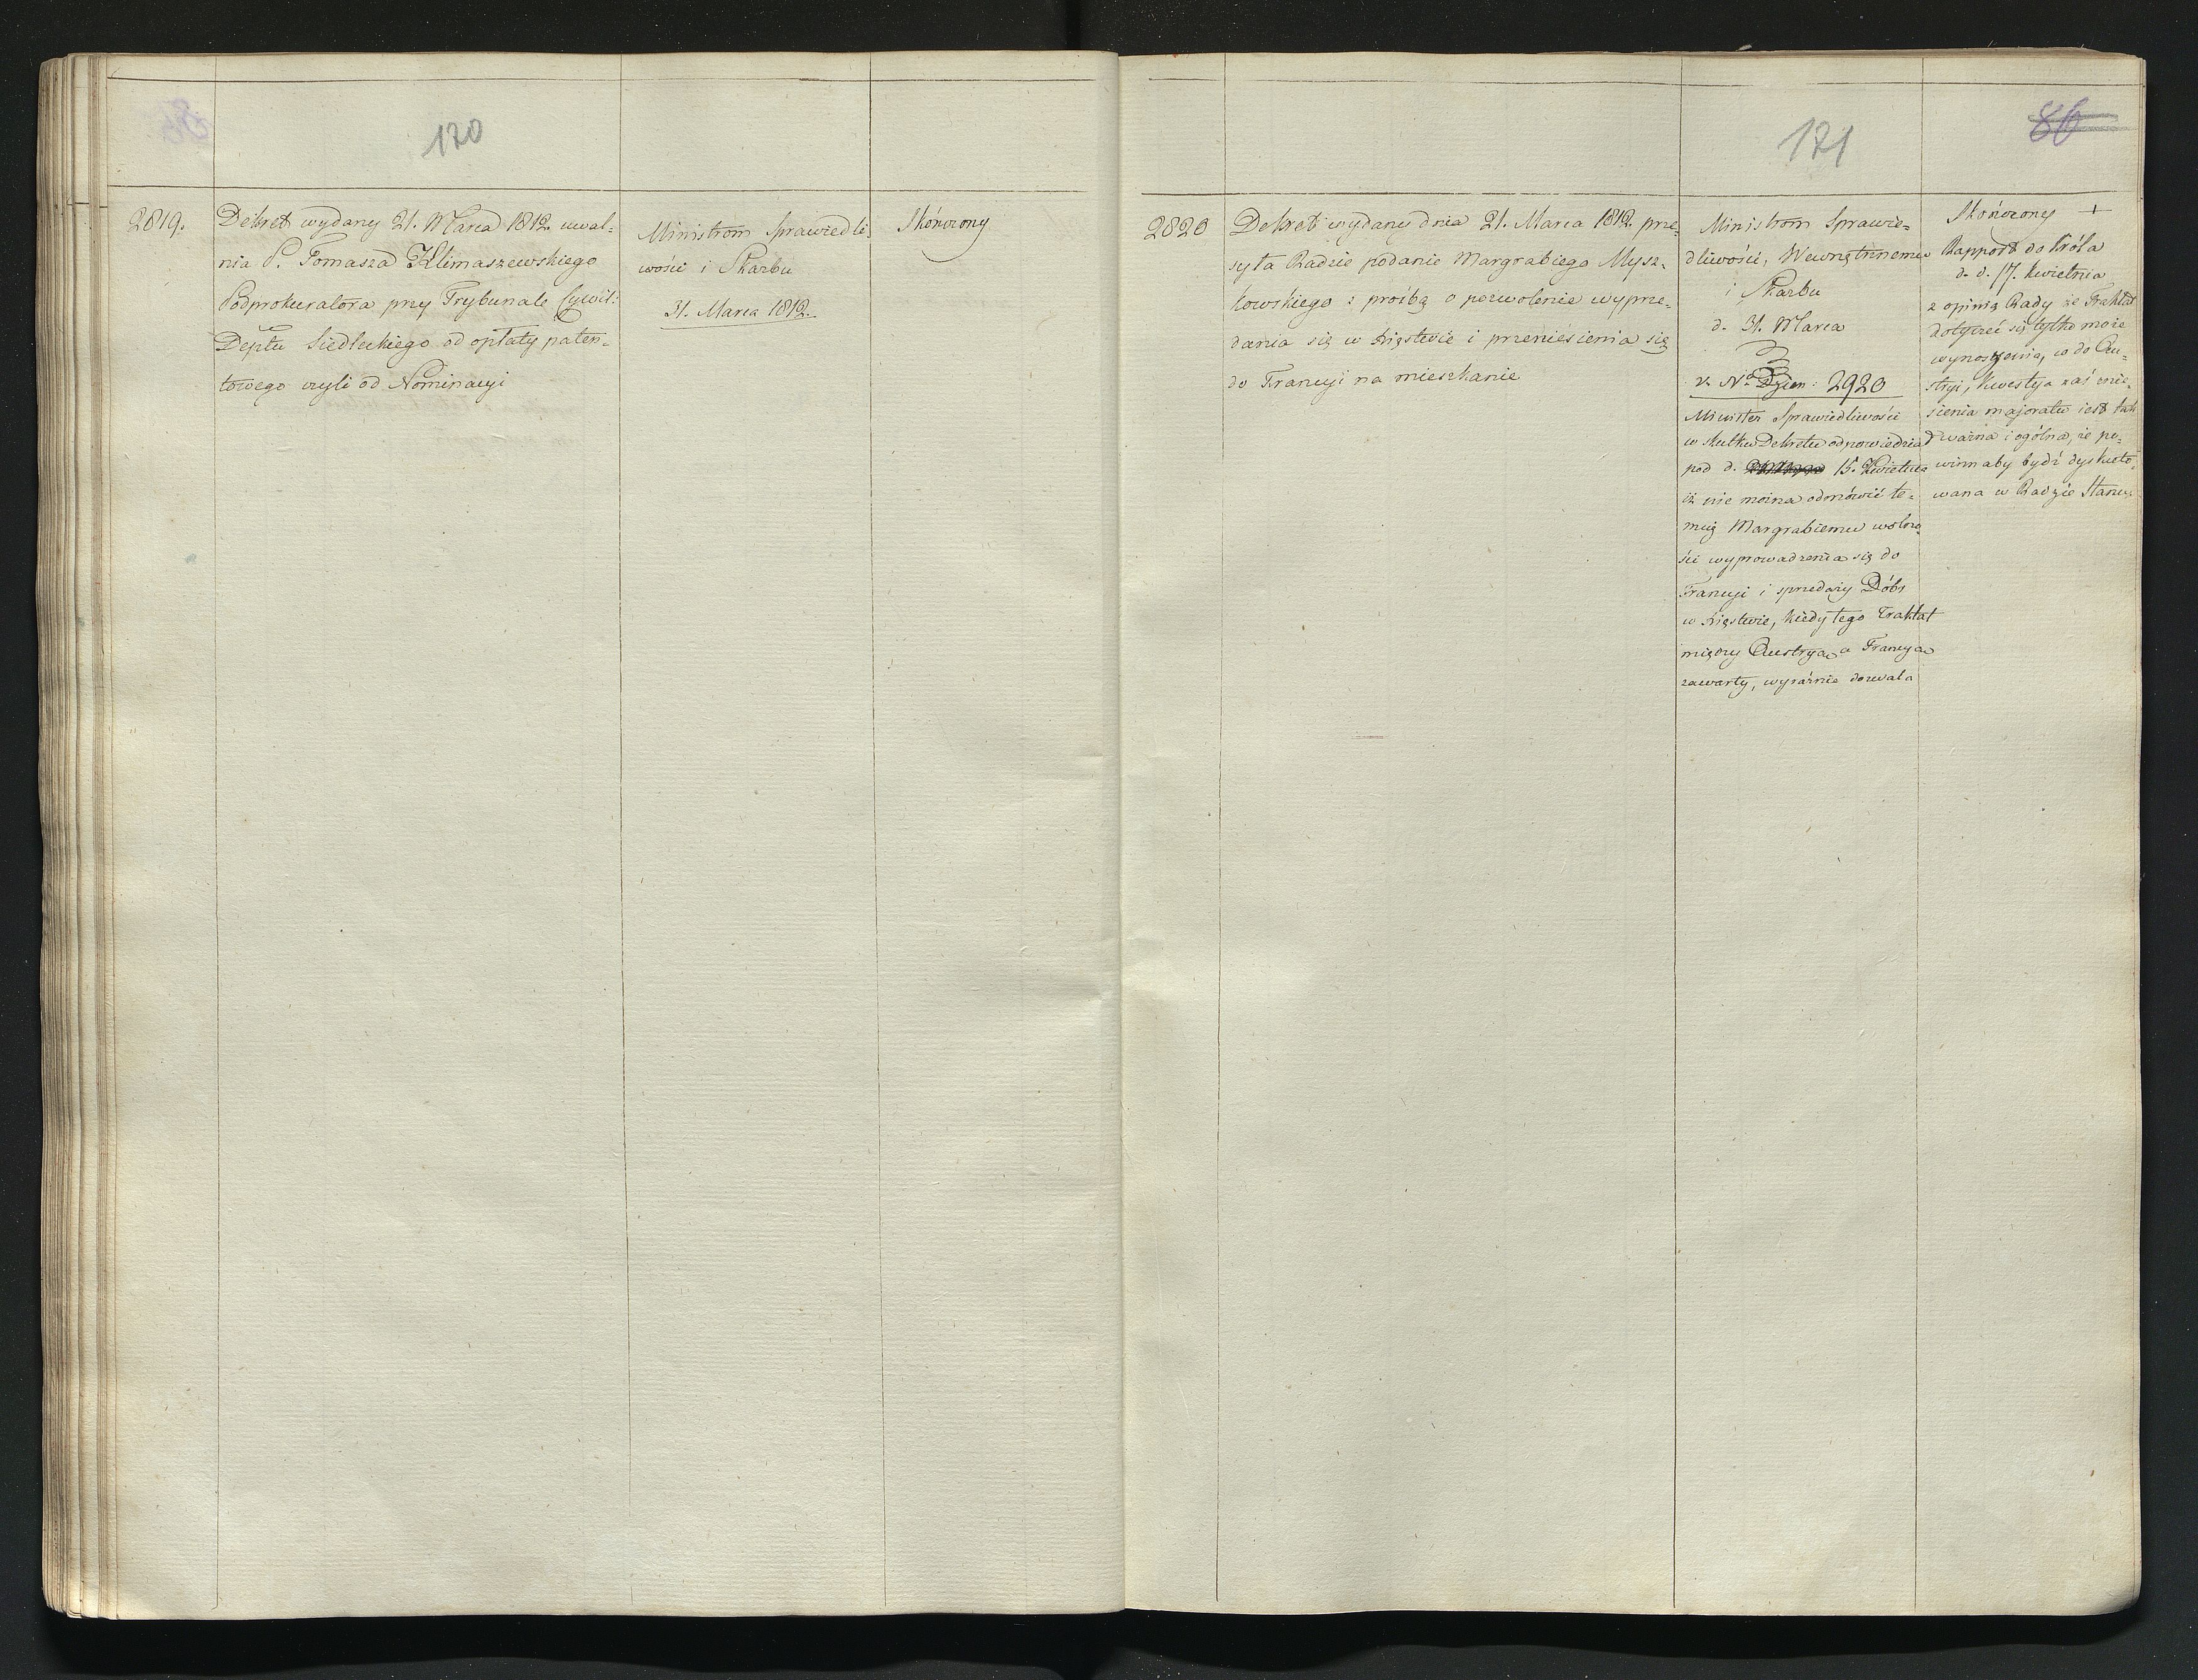 170
2819.
Dekret wydany 21. Marca 1812. uwal-
nia P. Tomasza Klimaszewskiego
Podprokuratora przy Trybunale Cywil:
Deptu Siedleckiego od opłaty paten-
towego czyli od Nominacyi
Ministrom Sprawiedli-
wości i Skarbu
31. Marca 1812.
Skończony
171
86
2820
Dekret wydany dnia 21. Marca 1812. prze-
syła Radzie podanie Margrabiego Mysz-
kowskiego z proźbą o pozwolenie wyprze-
dania się w Xięstwie i przeniesienia się
do Francyi na mieszkanie
Ministrom Sprawie-
dliwości, Wewnętrznemu
i Skarbu
d. 31. Marca
v. No Dzien: 2920
Minister Sprawiedliwości
w skutku Dekretu odpowiedzia
pod d. 15. Kwietnia
iż nie można odmówić te-
muż Margrabiemu wolno-
ści wyprowadzenia się do
Francyi i sprzedaży Dóbr
w Xięstwie, kiedy tego Traktat
między Austryą a Francyą
zawarty, wyraźnie dozwala
Skończony +
Rapport do Króla
d. d. 17. Kwietnia
z opinią Rady że Traktat
dotyczeć się tylko może
wynoszenia, co do Au-
stryi, kwestya zaś znie-
sienia majoratu iest tak
ważna i ogólna, że po-
winnaby bydź dyskuto-
wana w Radzie Stanu